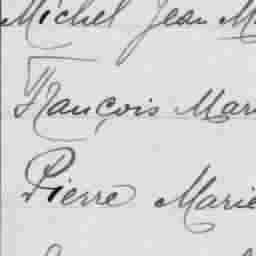 Michel Jean M
François Mari
Pierre Marie